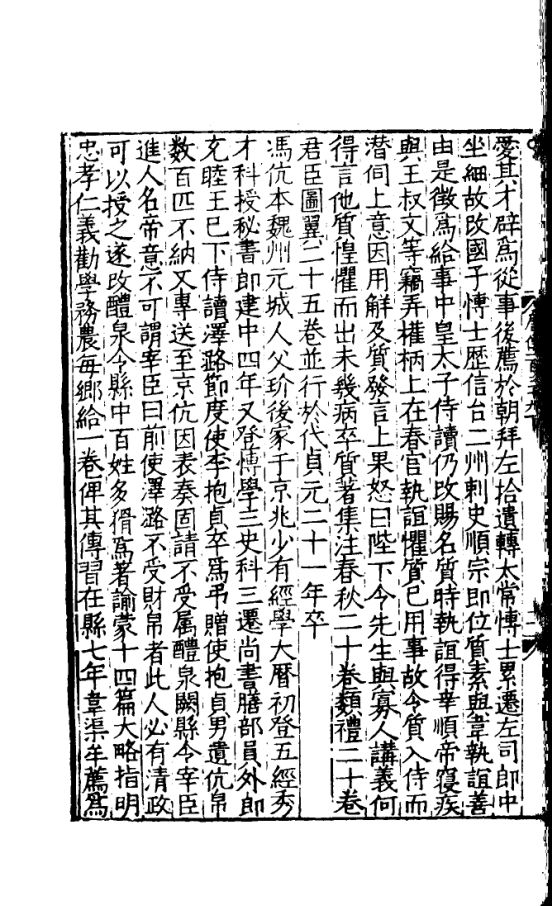 愛其才辟爲從事後薦於朝拜左拾遺轉太常博士累遷左司郎中
坐細故改國子博士歷信台二州刺史順宗即位質素與韋執誼善
由是徵爲給事中皇太子侍讀仍改賜名質時執誼得幸順帝寑疾
與王叔文等竊弄權柄上在春官執誼懼質已用事故令質入侍而
潛伺上意因用解及質發言上果怒曰陛下令先生與寡人講義何
得言他質惶懼而出未幾病卒質著集注春秋二十卷類禮二十卷
君臣圖翼二十五卷並行於代貞元二十一年卒
馮伉本魏州元城人父玠後家于京兆少有經學大曆初登五經秀
才科授秘書郎建中四年又登博學三史科三遷尚書膳部員外郎
充睦王已下侍讀澤潞節度使李抱貞卒爲弔贈使抱貞男遺伉帛
数百匹不納又專送至京伉因表奏固請不受属醴泉闕縣令宰臣
進人名帝意不可謂宰臣曰前使澤潞不受財帛者此人必有清政
可以授之遂改醴泉令縣中百姓多猾爲著諭蒙十四篇大略指明
忠孝仁義勸學務農每鄉給一卷俾其傳習在縣七年韋渠牟薦爲